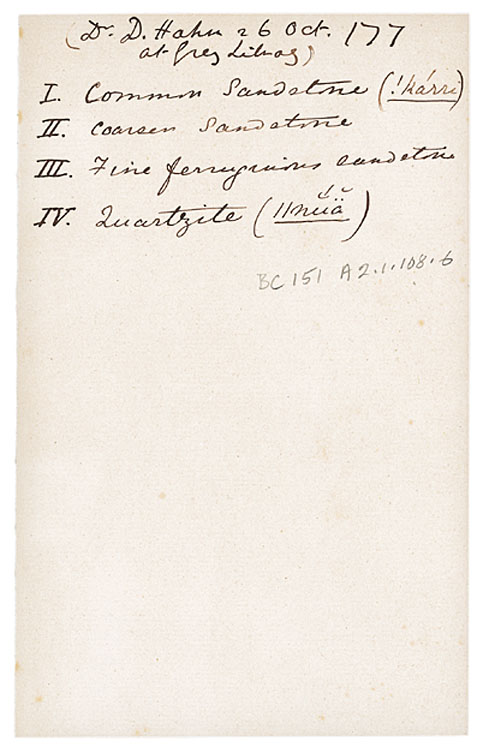 (Dr. D. Hahn 26 Oct. '77
at Grey Library)
I. Common Sandstone (!kárri)
II. Coarser Sandstone
III. Fine ferruginous sandstone
IV. Quartzite (||nŭ́ä̆)
BC 151 A2.1.108.6